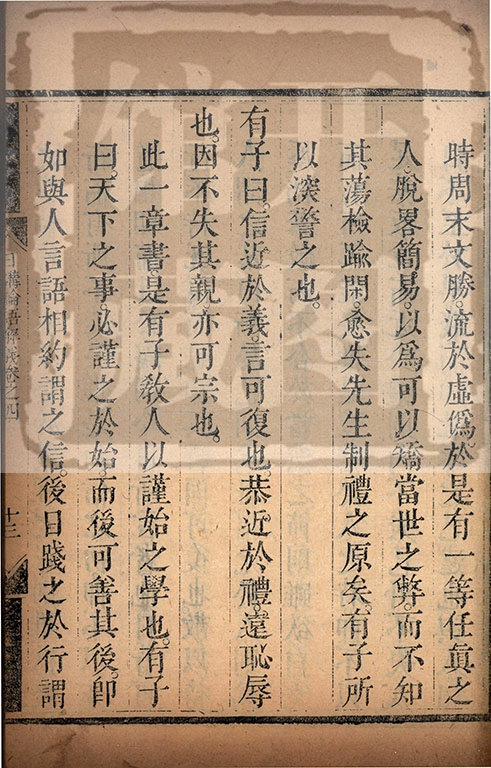 時周末文勝。流於虛僞。於是有一等任眞之
人。脫畧簡易。以爲可以矯當世之弊。而不知
其蕩檢踰閑。愈失先生制禮之原矣。有子所
以深警之也。
有子曰。信近於義。言可復也。恭近於禮。遠恥辱
也。因不失其親。亦可宗也。
此一章書是有子敎人以謹始之學也。有子
曰。天下之事。必謹之於始。而後可善其後。卽
如與人言語相約謂之信。後日踐之於行謂
日講論語解義卷之四
十三